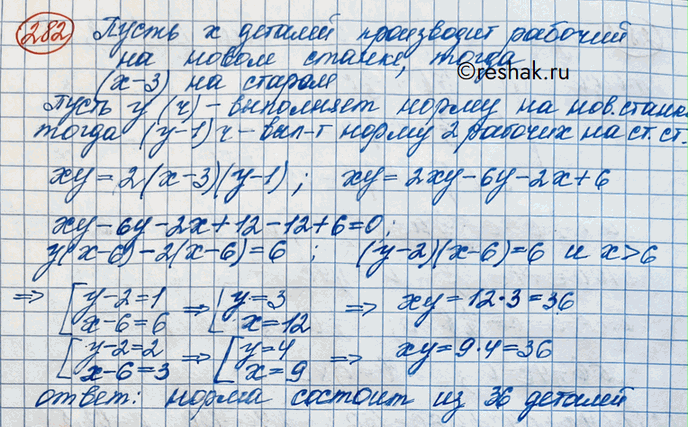 282 Пусть x деталей производит рабочий
на новом станке, тогда
©reshak.ru
(x-3) на старом
Пусть y (ч) - выполняет норму на нов. станке
тогда (y-1) ч - вып-т норму 2 рабочих на ст. ст.
xy = 2(x-3)(y-1); xy = 2xy-6y-2x+6
xy-6y-2x+12-12+6=0;
y(x-6)-2(x-6)=6 ; (y-2)(x-6)=6 и x>6
⇒ [ y-2=1 ⇒ [ y=3 ⇒ xy=12·3=36
x-6=6 x=12
[ y-2=2 ⇒ [ y=4 ⇒ xy=9·4=36
x-6=3 x=9
ответ: норма состоит из 36 деталей